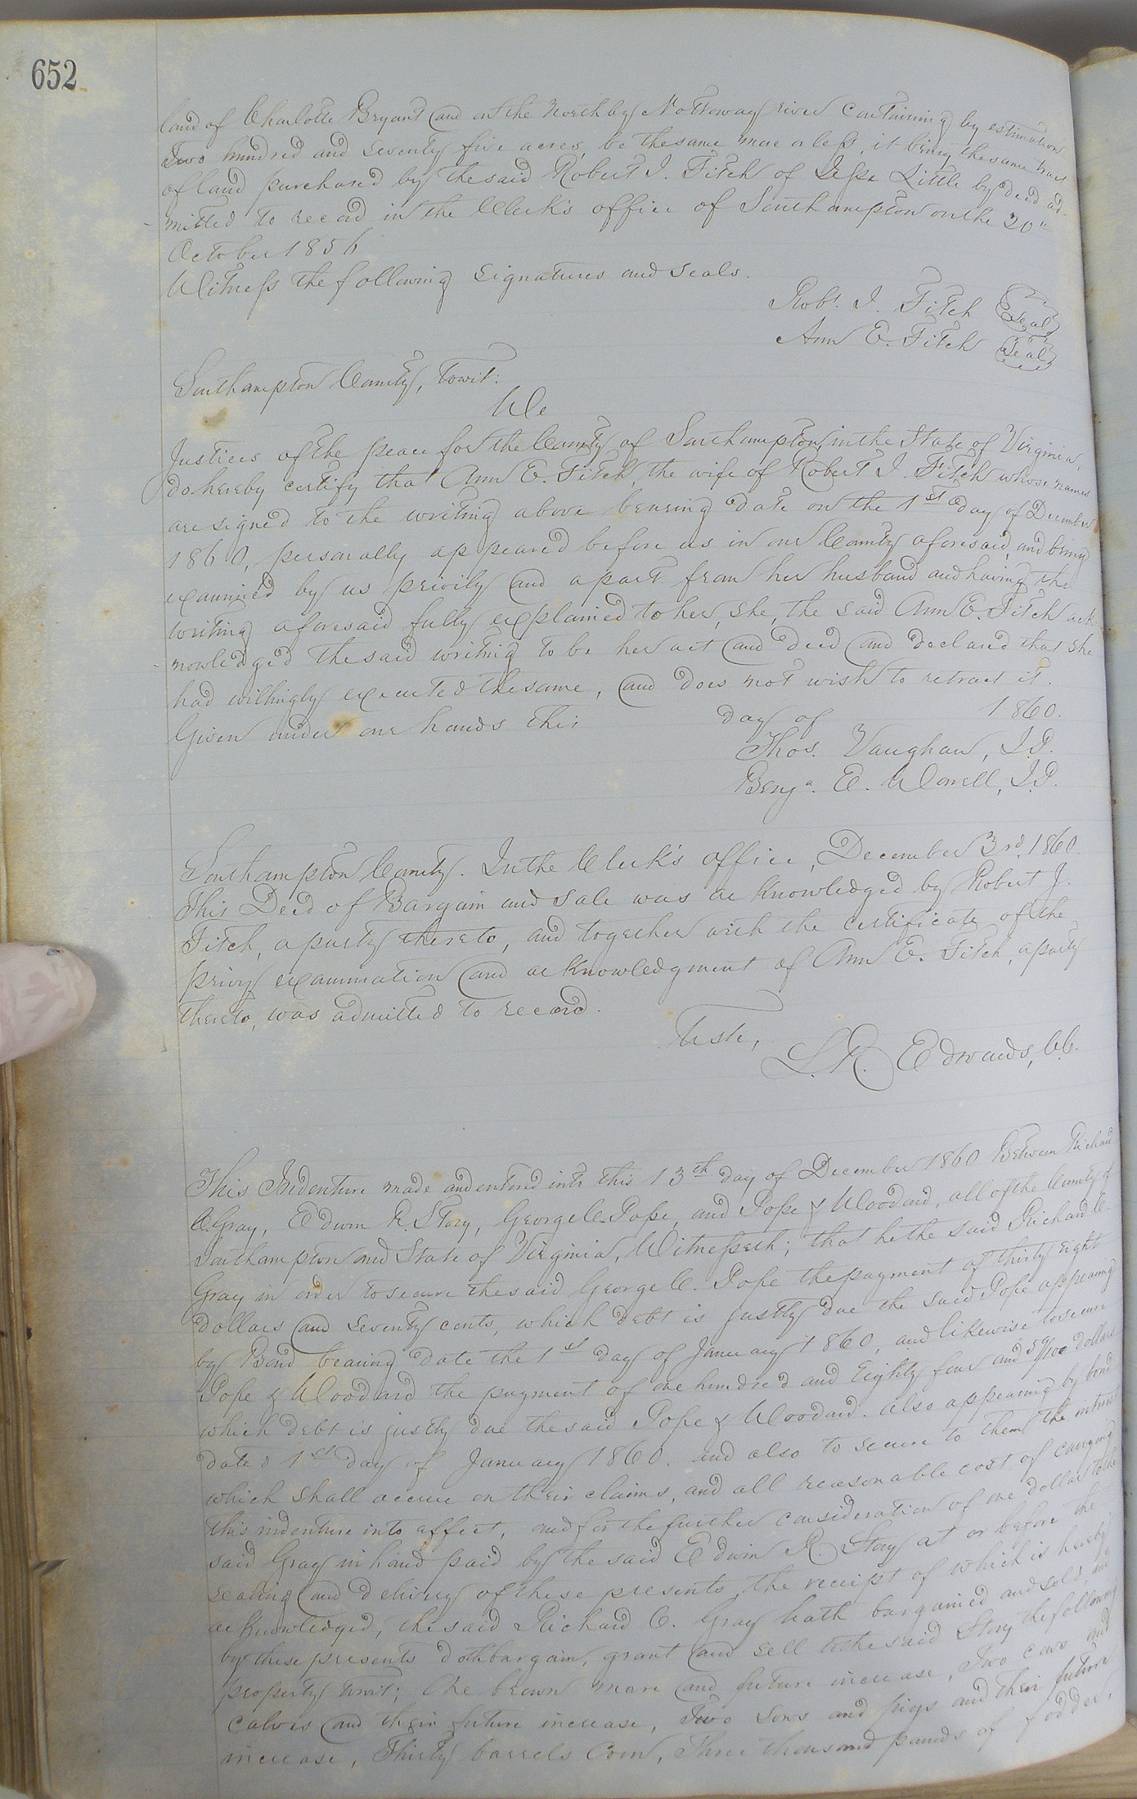 652
land of Charlotte Bryant and on the North by Nottoway river containing by estimation
Two hundred and seventy five acres, be the same more or less, it being the same tract
of land purchased by the said Robert J. Fitch of Jesse Little by deed ad-
mitted to record in the Clerk's office of Southampton on the 20th
October 1856
Witness the following signatures and seals.
Robt. J. Fitch Seal
Ann E. Fitch Seal
Southampton County, Towit:
We
Justices of the peace for the County of Southampton, in the State of Virginia,
do hereby certify that Ann E. Fitch, the wife of Robert J. Fitch whose names
are signed to the writing above bearing date on the 1st day of December
1860, personally appeared before us in our County aforesaid, and being
examined by us privily and apart from her husband and having the
writing aforesaid fully explained to her, she, the said Ann E. Fitch ack-
nowledged the said writing to be her act and deed and declared that she
had willingly executed the same, and does not wish to retract it.
Given under our hands this day of 1860.
Thos. Vaughan, J.P.
Benja. E. Worrell, J.P.
Southampton County. In the Clerk's office, December 3rd, 1860
This Deed of Bargain and sale was acknowledged by Robert J.
Fitch, a party thereto, and together with the certificate of the
privy examination and acknowledgment of Ann E. Fitch, a party
thereto, was admitted to record.
Teste,
L. R. Edwards, C.C.
This Indenture made and entered into this 13th day of December 1860 Between Richard
C. Gray, Edwin R. Story, George C. Pope, and Pope & Woodard, all of the County of
Southampton and State of Virginia, Witnesseth; that he the said Richard C.
Gray in order to secure the said George C. Pope the payment of thirty eight
dollars and seventy cents, which debt is justly due the said Pope appearing
by Bond bearing date the 1st day of January 1860, and likewise to secure
Pope & Woodard the payment of one hundred and Eighty four and /100 dollars
which debt is justly due the said Pope & Woodard. also appearing by bond
dated 1st day of January 1860. and also to secure to them the interest
which shall accrue on their claims, and all reasonable cost of carrying
this indenture into affect, and for the further consideration of one dollar to the
said Gray in hand paid by the said Edwin R. Story at or before the
sealing and delivery of these presents, the receipt of which is hereby
acknowledged, the said Richard C. Gray hath bargained and sold and
by these presents doth bargain, grant and sell to the said Story the following
property towit; One brown mare and future increase, Two cows and
calves and their future increase, Two sows and pigs and their future
increase, Thirty barrels Corn, Three thousand pounds of fodder,